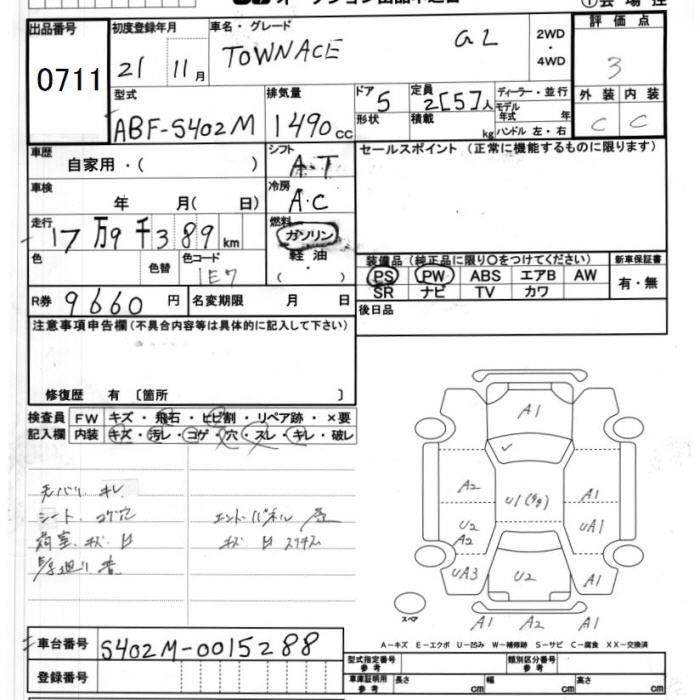 出品番号 初度登録年月 車名・グレード 2WD・4WD 評価点
0711 21 11月 TOWNACE GL 3
型式 排気量 ドア 5 定員 2[5]人 ディーラー・並行 外装 内装
ABF-S402M 1490cc 形状 積載 kg モデル年式 年 C C
ハンドル 左・右
車歴 自家用・( ) シフト A・T セールスポイント (正常に機能するものに限ります)
車検 年 月( 日) 冷房 A・C
走行 17万9千389km 燃料 ガソリン
色 色替 色コード 1E7 軽油 ・ ( )
装備品 (純正品に限り○をつけてください) 新車保証書
PS PW ABS エアB AW 有・無
SR ナビ TV カワ
R券 9660円 名変期限 月 日 後日品
注意事項申告欄 (不具合内容等は具体的に記入して下さい)
修復歴 有 〔箇所 〕
検査員 FW キズ・飛石・ヒビ割・リペア跡・×要
記入欄 内装 キズ・汚レ・コゲ・穴・スレ・キレ・破レ
モバリ キレ
シート コゲ穴 エンドパネル
荷室 キズ 凹 キズ 凹
A1
A2 U1 A1
U2 A2 UA1
UA3 U2 A1
スペア A1 A2 A1
A-キズ E-エクボ U-凹み W-補修跡 S-サビ C-腐食 XX-交換済
車台番号 S402M-0015288
登録番号
型式指定番号 参考 類別区分番号 参考
車庫証明用 参考 長さ cm 幅 cm 高さ cm